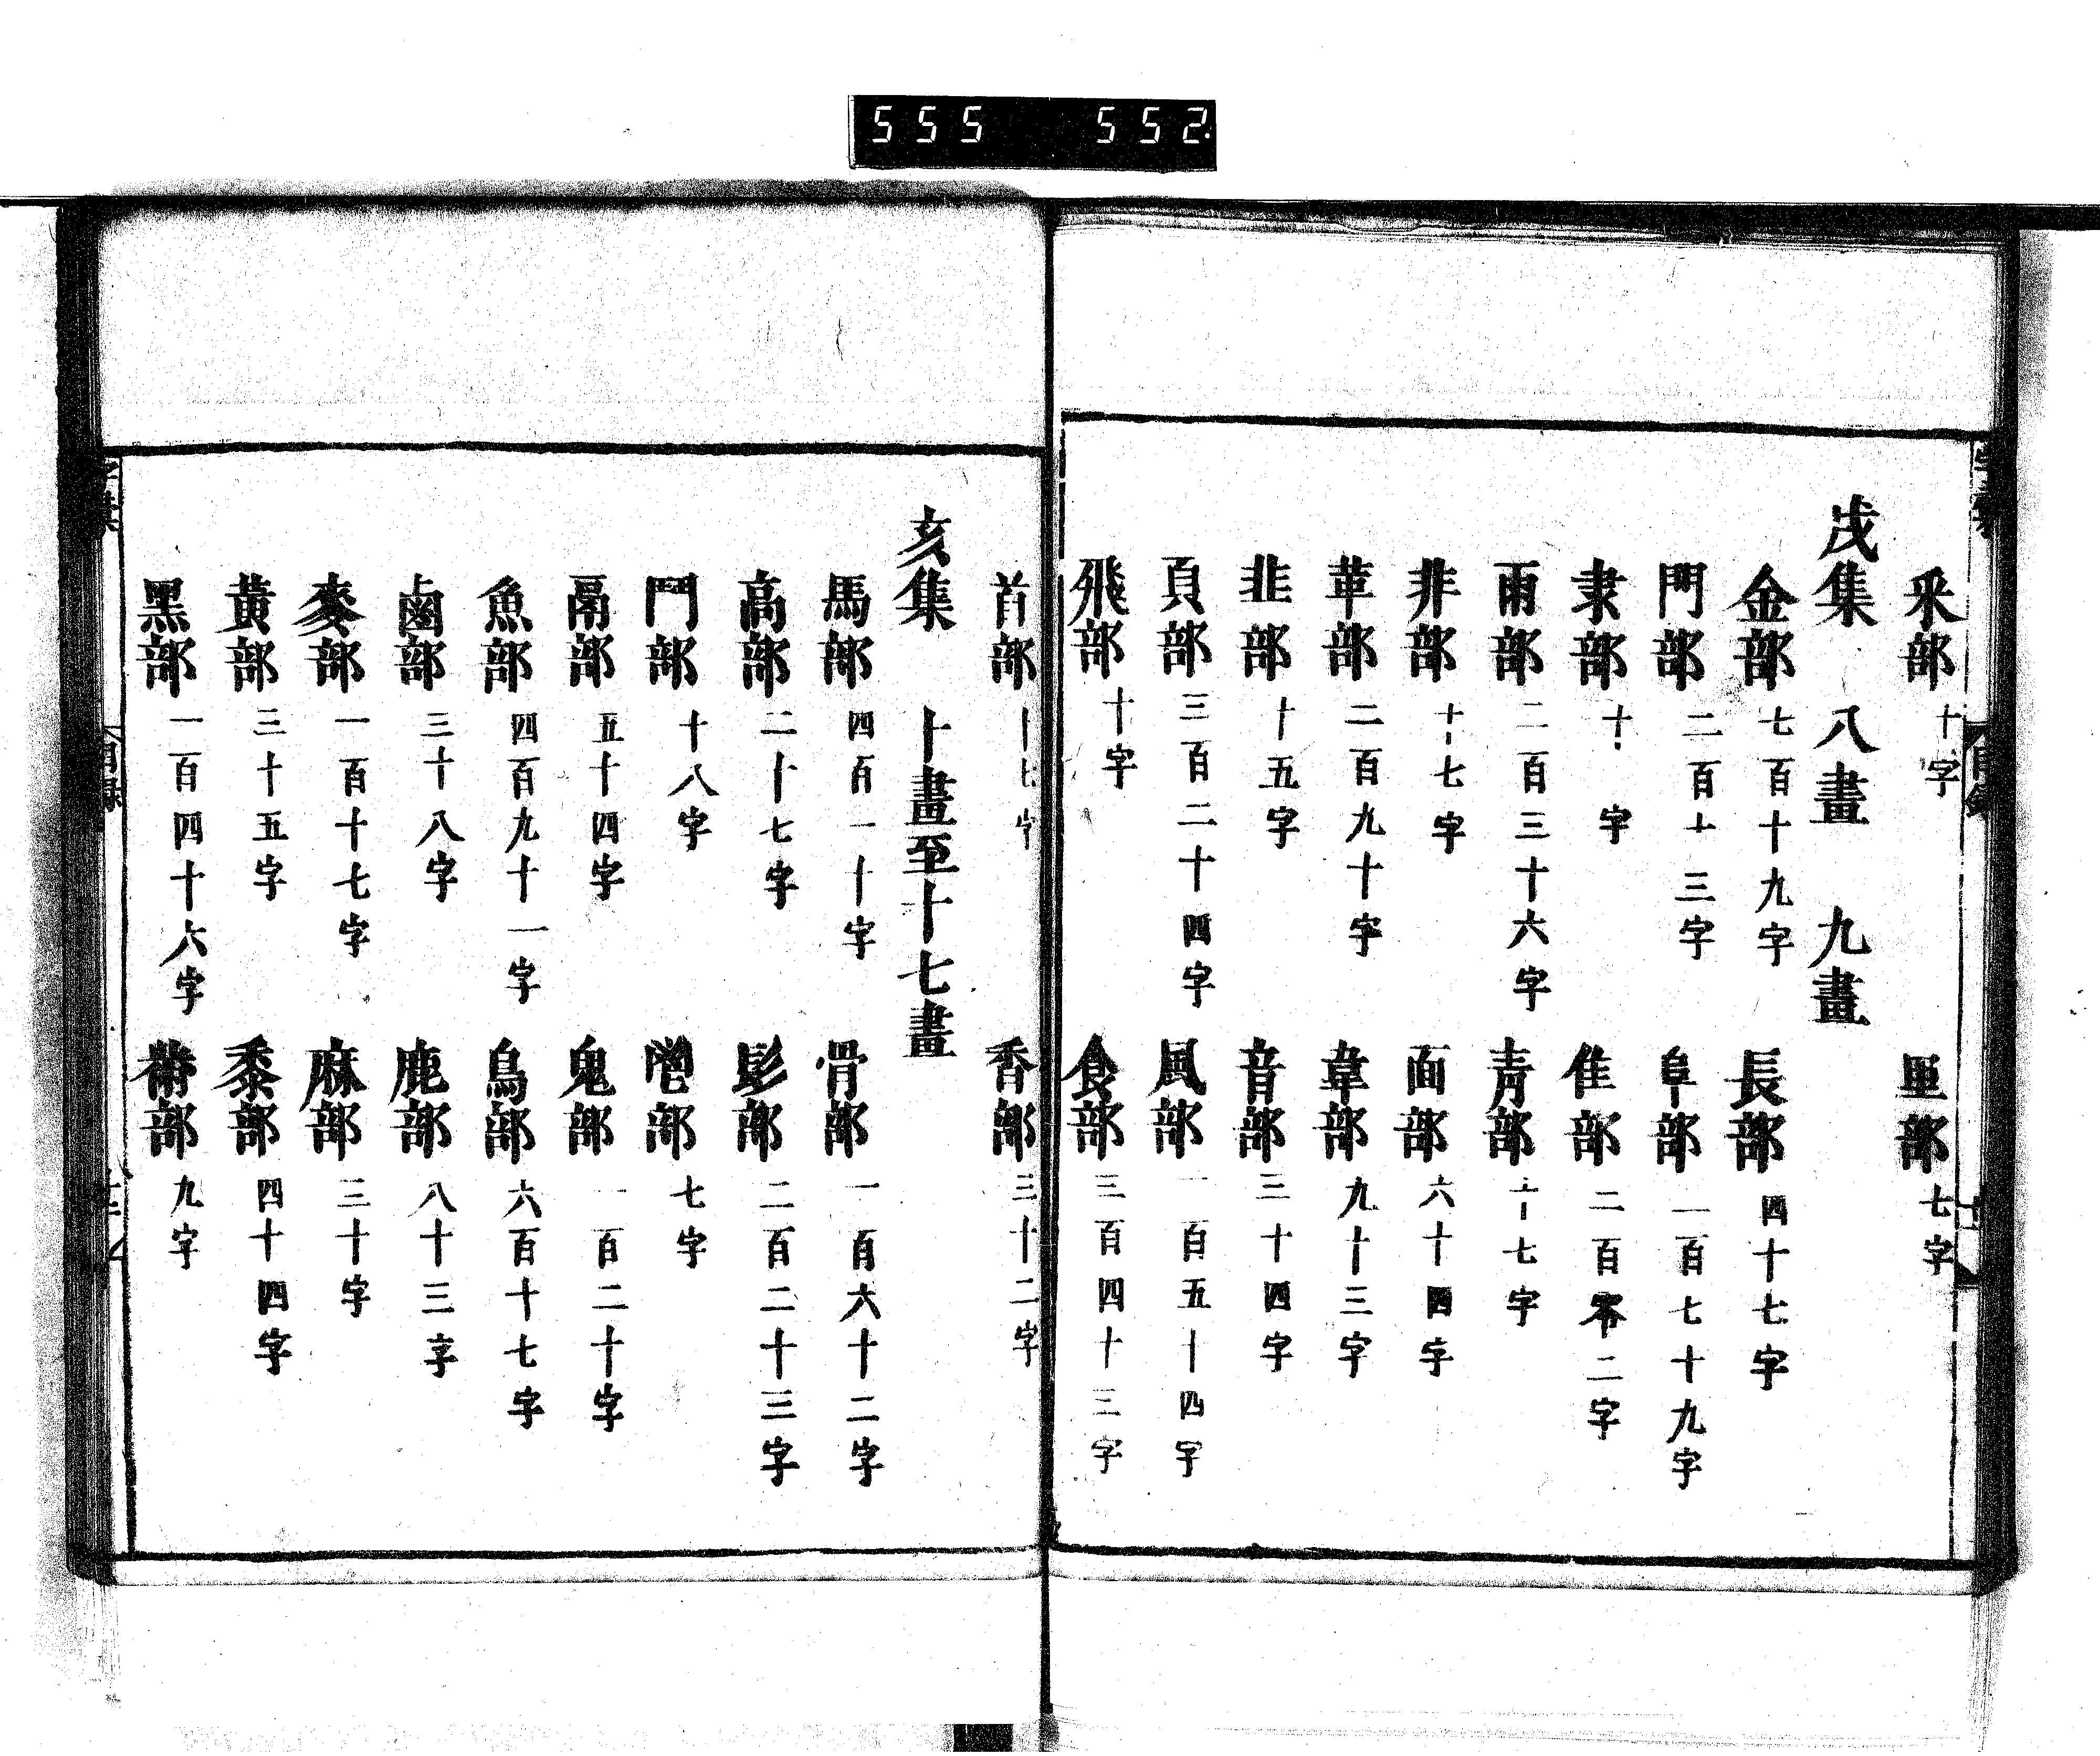 555 552
釆部 十字 里部 七字
戌集 八畫 九畫
金部 七百十九字 長部 四十七字
門部 二百十三字 阜部 一百七十九字
隶部 十字 隹部 二百零二字
雨部 二百三十六字 靑部 十七字
非部 十七字 面部 六十四字
革部 二百九十字 韋部 九十三字
韭部 十五字 音部 三十四字
頁部 三百二十四字 風部 一百五十四字
飛部 十字 食部 三百四十三字
首部 十七字 香部 三十二字
亥集 十畫至十七畫
馬部 四百一十字 骨部 一百六十二字
高部 二十七字 髟部 二百二十三字
鬥部 十八字 鬯部 七字
鬲部 五十四字 鬼部 一百二十字
魚部 四百九十一字 鳥部 六百十七字
鹵部 三十八字 鹿部 八十三字
麥部 一百十七字 麻部 三十字
黃部 三十五字 黍部 四十四字
黑部 一百四十六字 黹部 九字